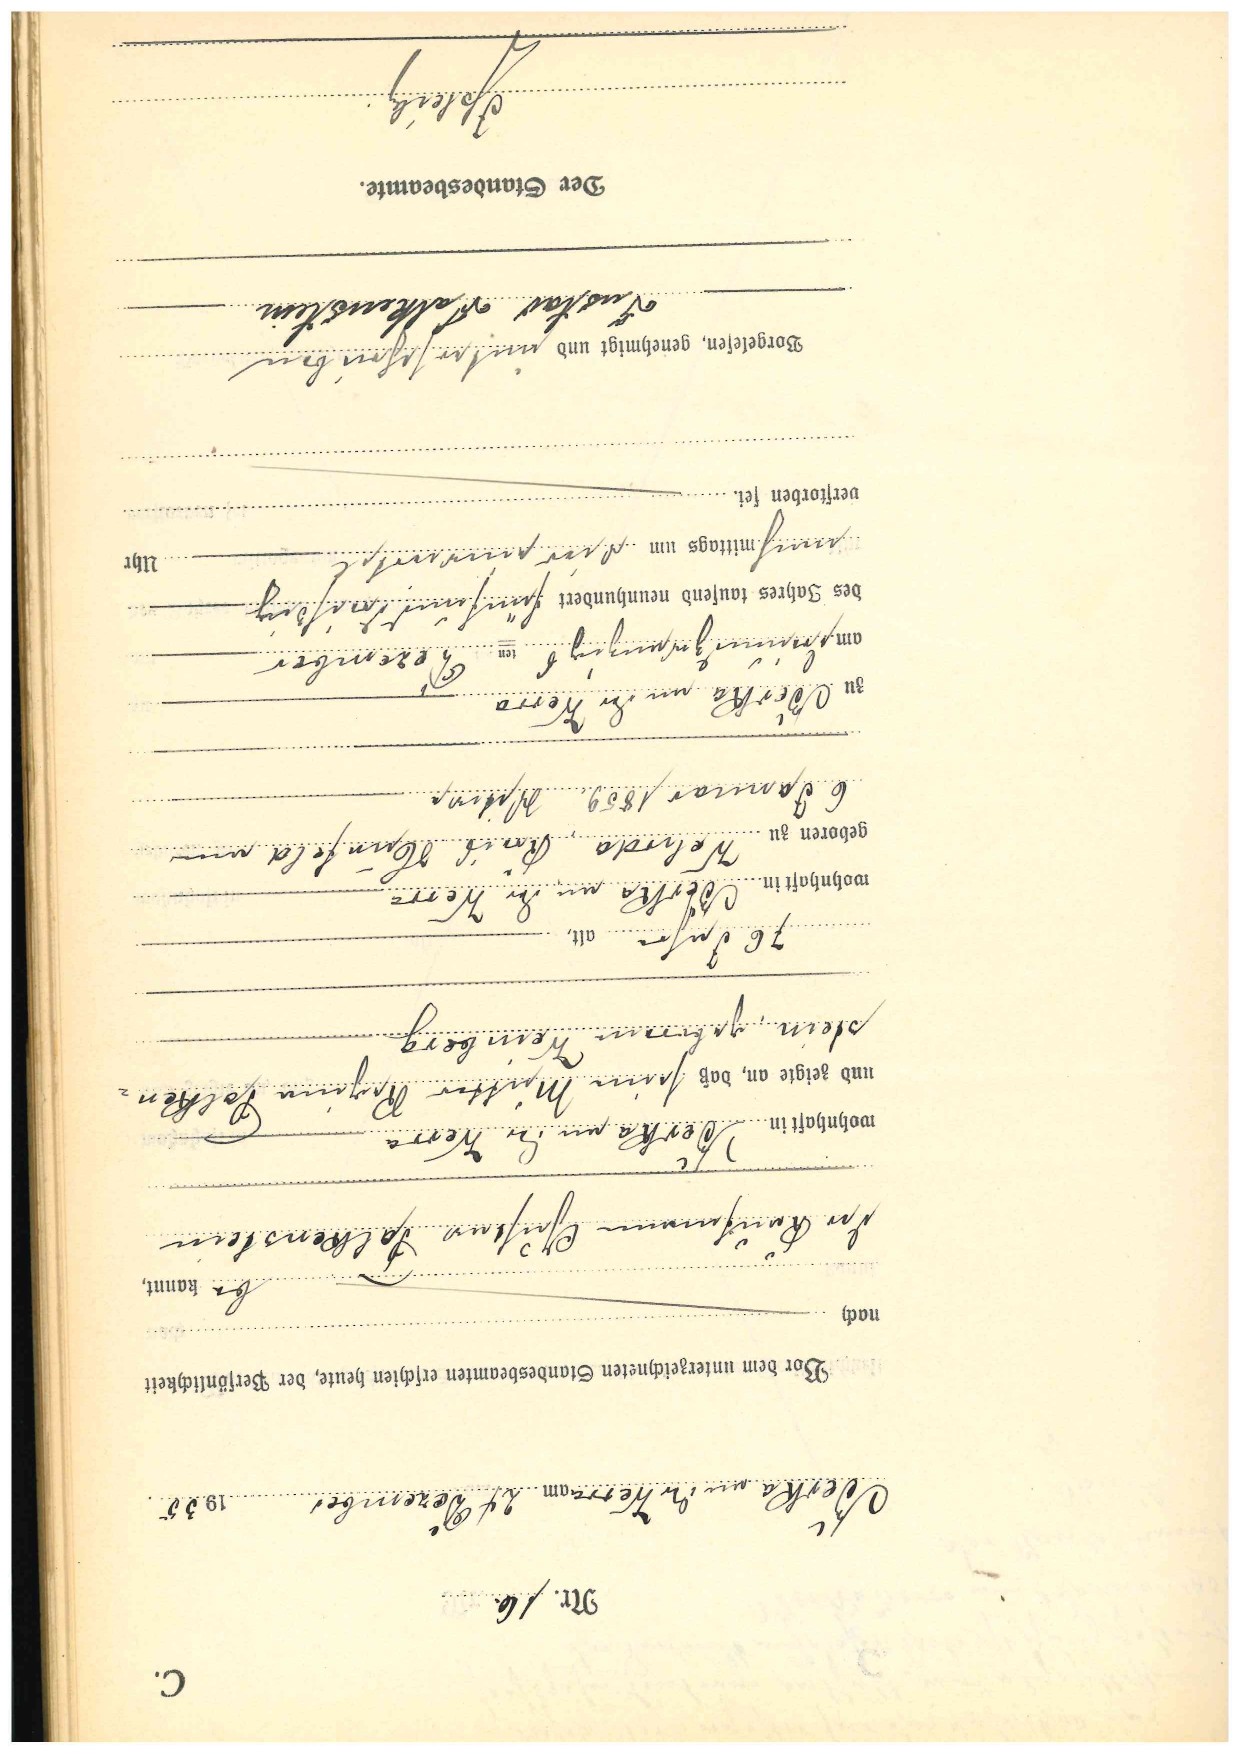 C.
Nr. 16.
Berka an der Werra am 24 Dezember 1935.
Vor dem unterzeichneten Standesbeamten erschien heute, der Persönlichkeit
nach
be kannt,
der Kaufmann Gustav Falkenstein
wohnhaft in Berka an der Werra
und zeigte an, daß seine Mutter Regina Falken-
stein, geborene Weinberg
76 Jahre alt,
wohnhaft in Berka an der Werra
geboren zu Wehrda, Kreis Hünfeld am
6 Januar 1859.
zu Berka an der Werra
am dreiundzwanzigs ten Dezember
des Jahres tausend neunhundert fünfunddreißig
nach mittags um drei dreiviertel Uhr
verstorben sei.
Vorgelesen, genehmigt und unterschrieben
Gustav Falkenstein
Der Standesbeamte.